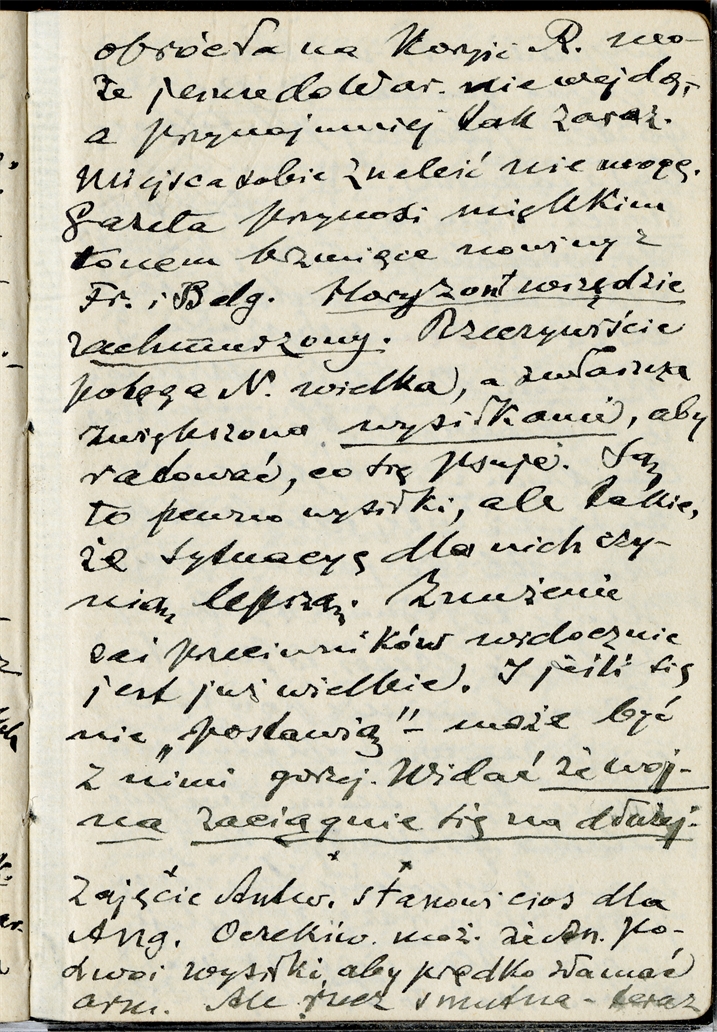 obróciła na korzyść R. mo-
że jeszcze do War. nie wejdą,
a przynajmniej tak zaraz.
Miejsca sobie znaleść nie mogę.
Gazeta przynosi miękkim
tonem brzmiące nowiny z
Fr. i Belg. Horyzont wszędzie
zachmurzony. Rzeczywiście
potęga N. wielka, a zwłaszcza
zwiększona wysiłkami, aby
ratować, co się psuje. Są
to pewno wysiłki, ale takie,
że sytuacyę dla nich czy-
nią lepszą. Znużenie
zaś przeciwników widocznie
jest już wielkie. I jeśli się
nie „postawią" – może być
z nimi gorzej. Widać że woj-
na zaciągnie się na dłużej.
Zajęcie Antw. stanowi cios dla
Ang. Oczekiw. moż. że An. po-
dwoi wysiłki aby prędko złamać
arm. Ale rzecz smutna – teraz